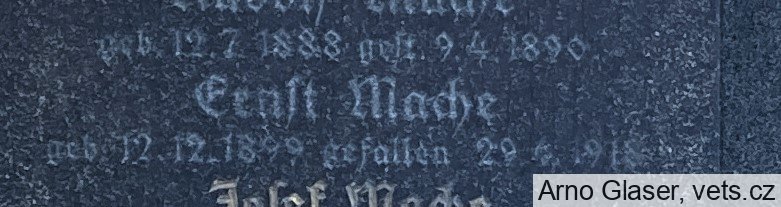 Rudolf Mache
geb. 12.7.1888 gest. 9.4.1890.
Ernst Mache
geb. 12.12.1899 gefallen 29. 1918
Josef Mache
Arno Glaser, vets.cz